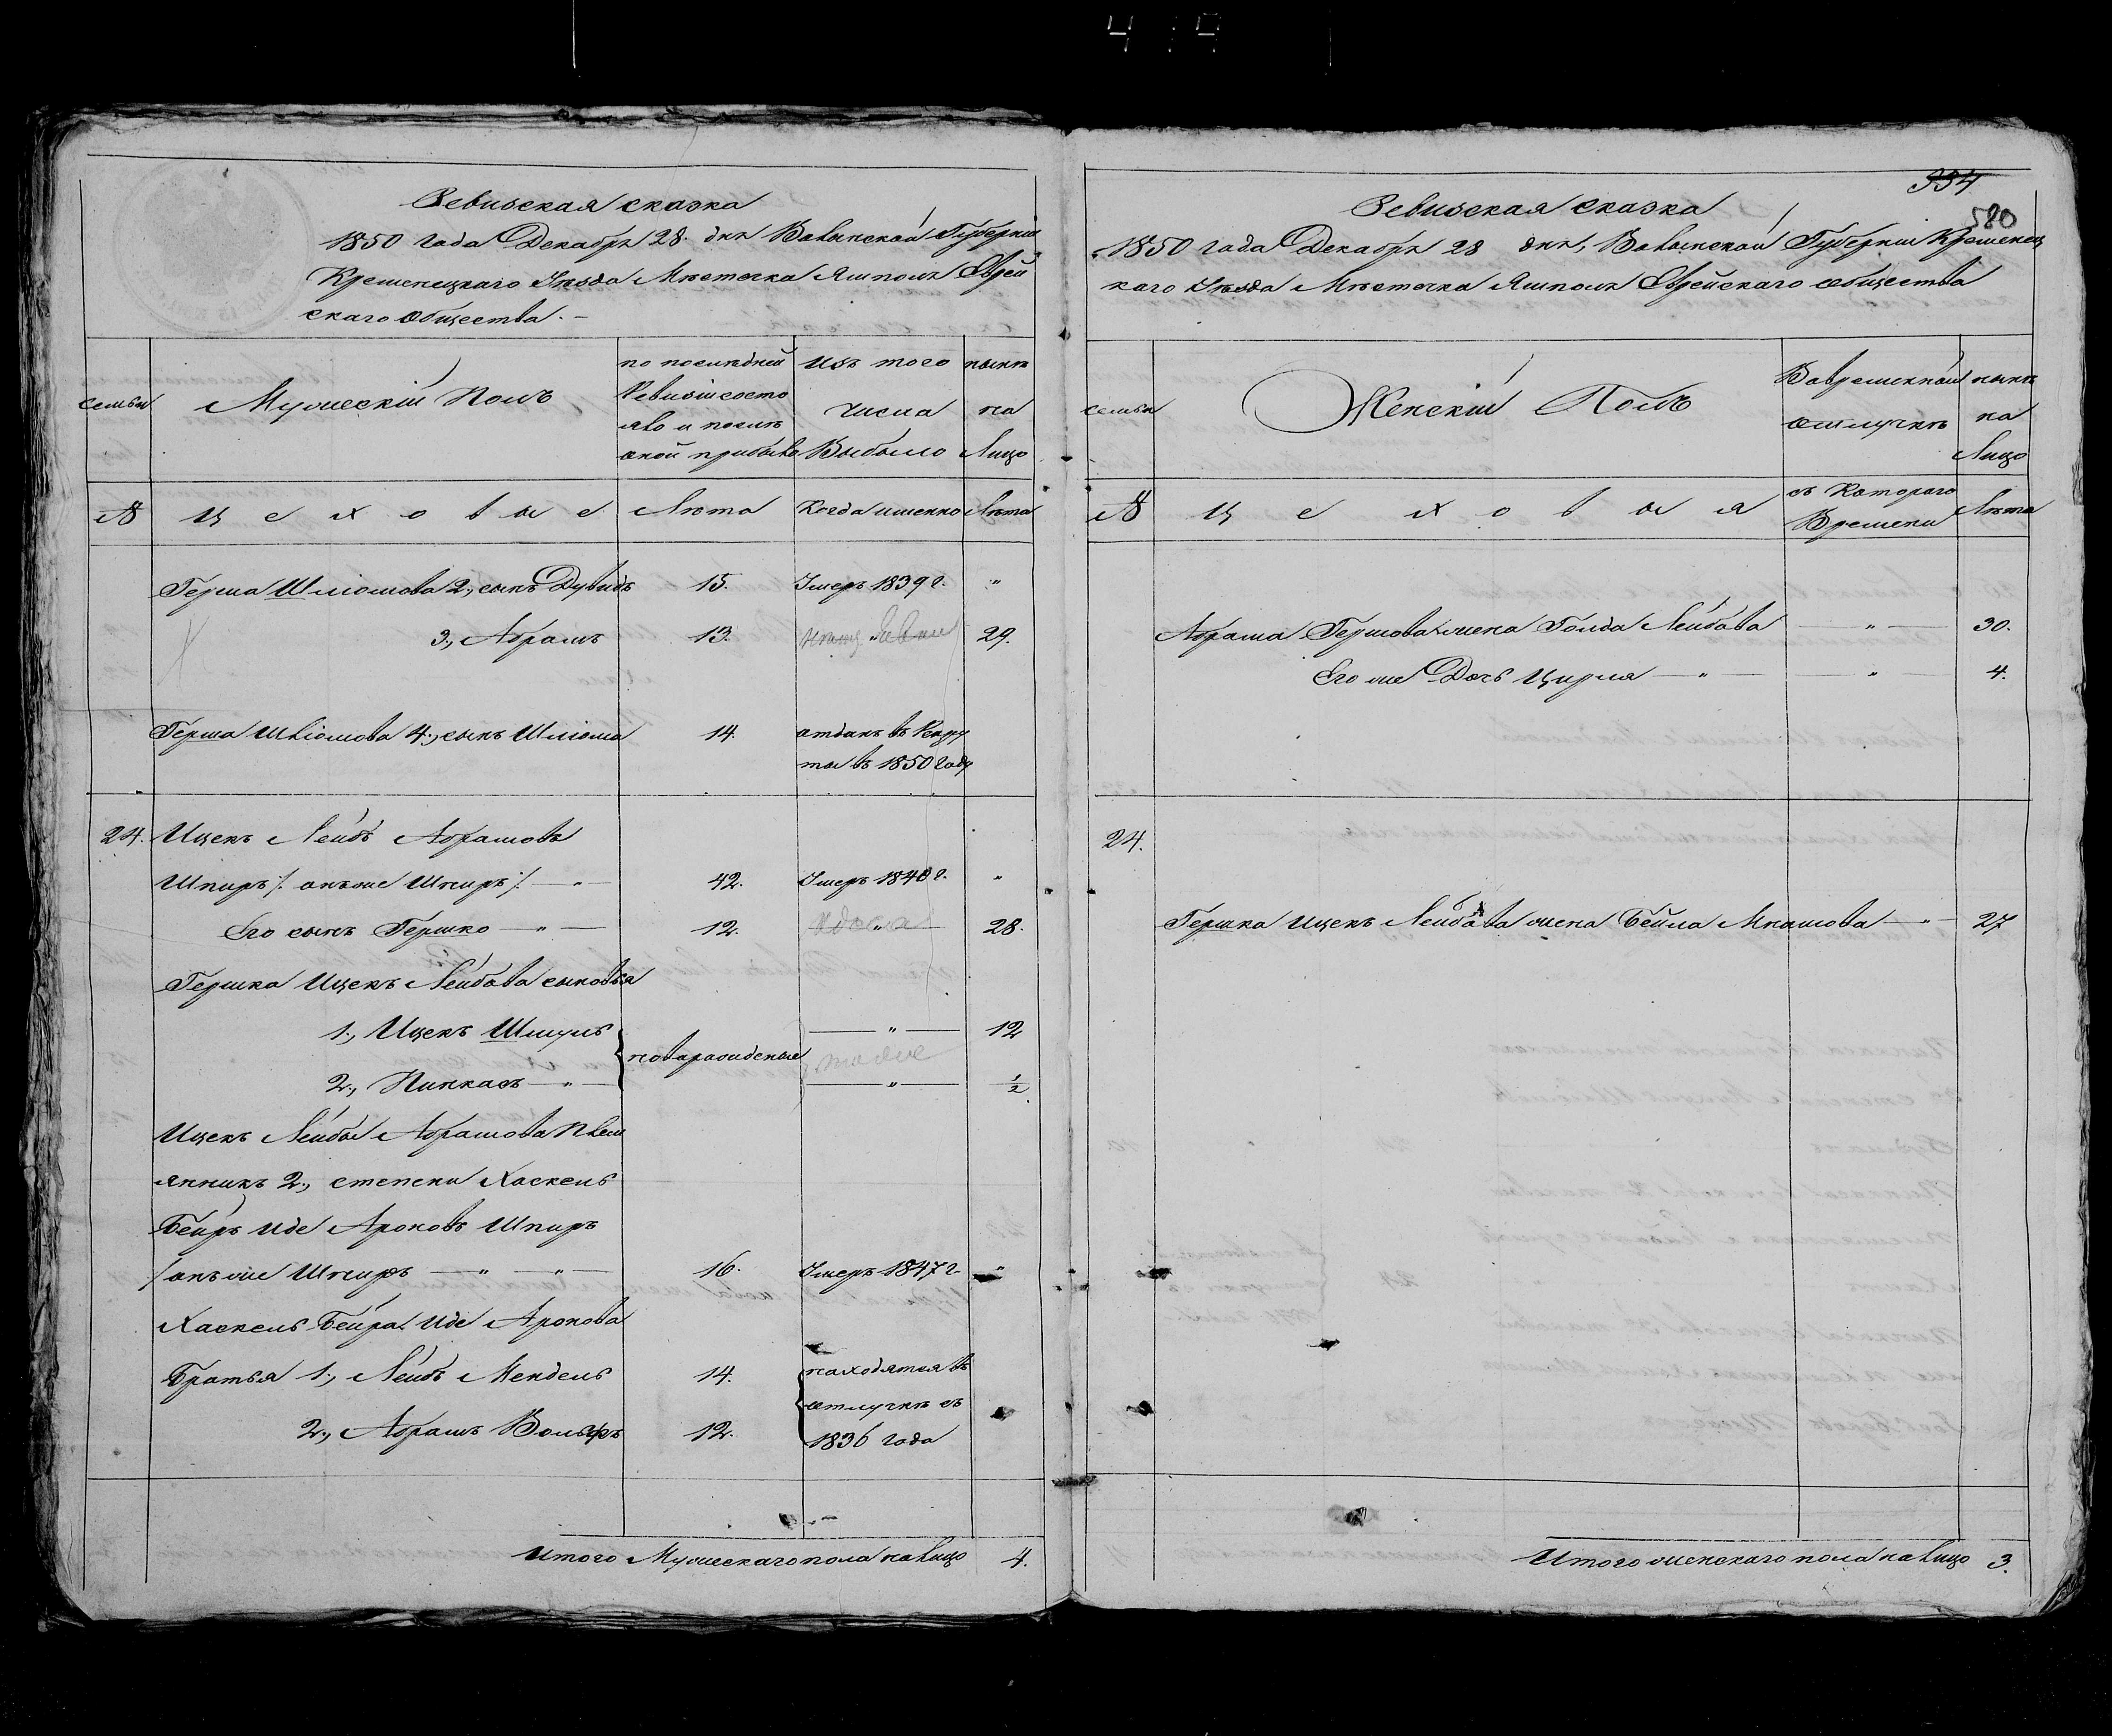 Ревизская сказка
1850 года Декабря 28. дня Волынской Губерніи
Кременецкаго Уѣзда Мѣстечка Ямполя Еврей
скаго общества.-
семьи
Мужескій Полъ
по послѣдней
Ревизіи состо
яло и послѣ
оной прибыло
изъ того
числа
Выбыло
нынѣ
на
Лицо
№
Цеховые
Лѣта
Когда именно
Лѣта
Герша Шліомова 2., сынъ Дувидъ 15. Умеръ 1839 г. "
3., Абрамъ 13. 29.
Герша Шліомова 4., сынъ Шліома 14. отданъ въ Рекру
ты въ 1850 году
24. Ицекъ Лейбъ Абрамовъ
Шпиръ /: онъ же Шпиръ :/ — " — 42. Умеръ 1848 г. "
Его сынъ Гершко — " — 12. " — 28.
Гершка Ицекъ Лейбова сыновья
1., Ицекъ Шмуль — " — 12
новорожденые
2., Пинкасъ — " — — " — ½
Ицекъ Лейбы Абрамова плем
янникъ 2., степени Хаскель
Бейръ Иде Ароновъ Шпиръ
/ онъ же Шпиръ — " — " — 16. Умеръ 1847 г. "
Хаскель Бейра Иде Аронова
Братья 1., Лейбъ Мендель 14. находятся въ
отлучкѣ съ
2., Абрамъ Вольфъ 12. 1836 года
Итого Мужескаго пола на лицо 4.
334
580
Ревизская сказка
1850 года Декабря 28 дня, Волынской Губерніи Кременец
каго Уѣзда Мѣстечка Ямполя Еврейскаго общества
семьи
Женскій Полъ
Вовременной
отлучкѣ
нынѣ
на
Лицо
№
Цеховыя
съ Котораго
Времени
Лѣта
Абрама Гершова жена Голда Лейбова — " — 30.
Его же Дочь Цирля — " — " — 4.
24.
Гершка Ицекъ Лейбова жена Бейла — " — 27
Итого женскаго пола на лицо 3.